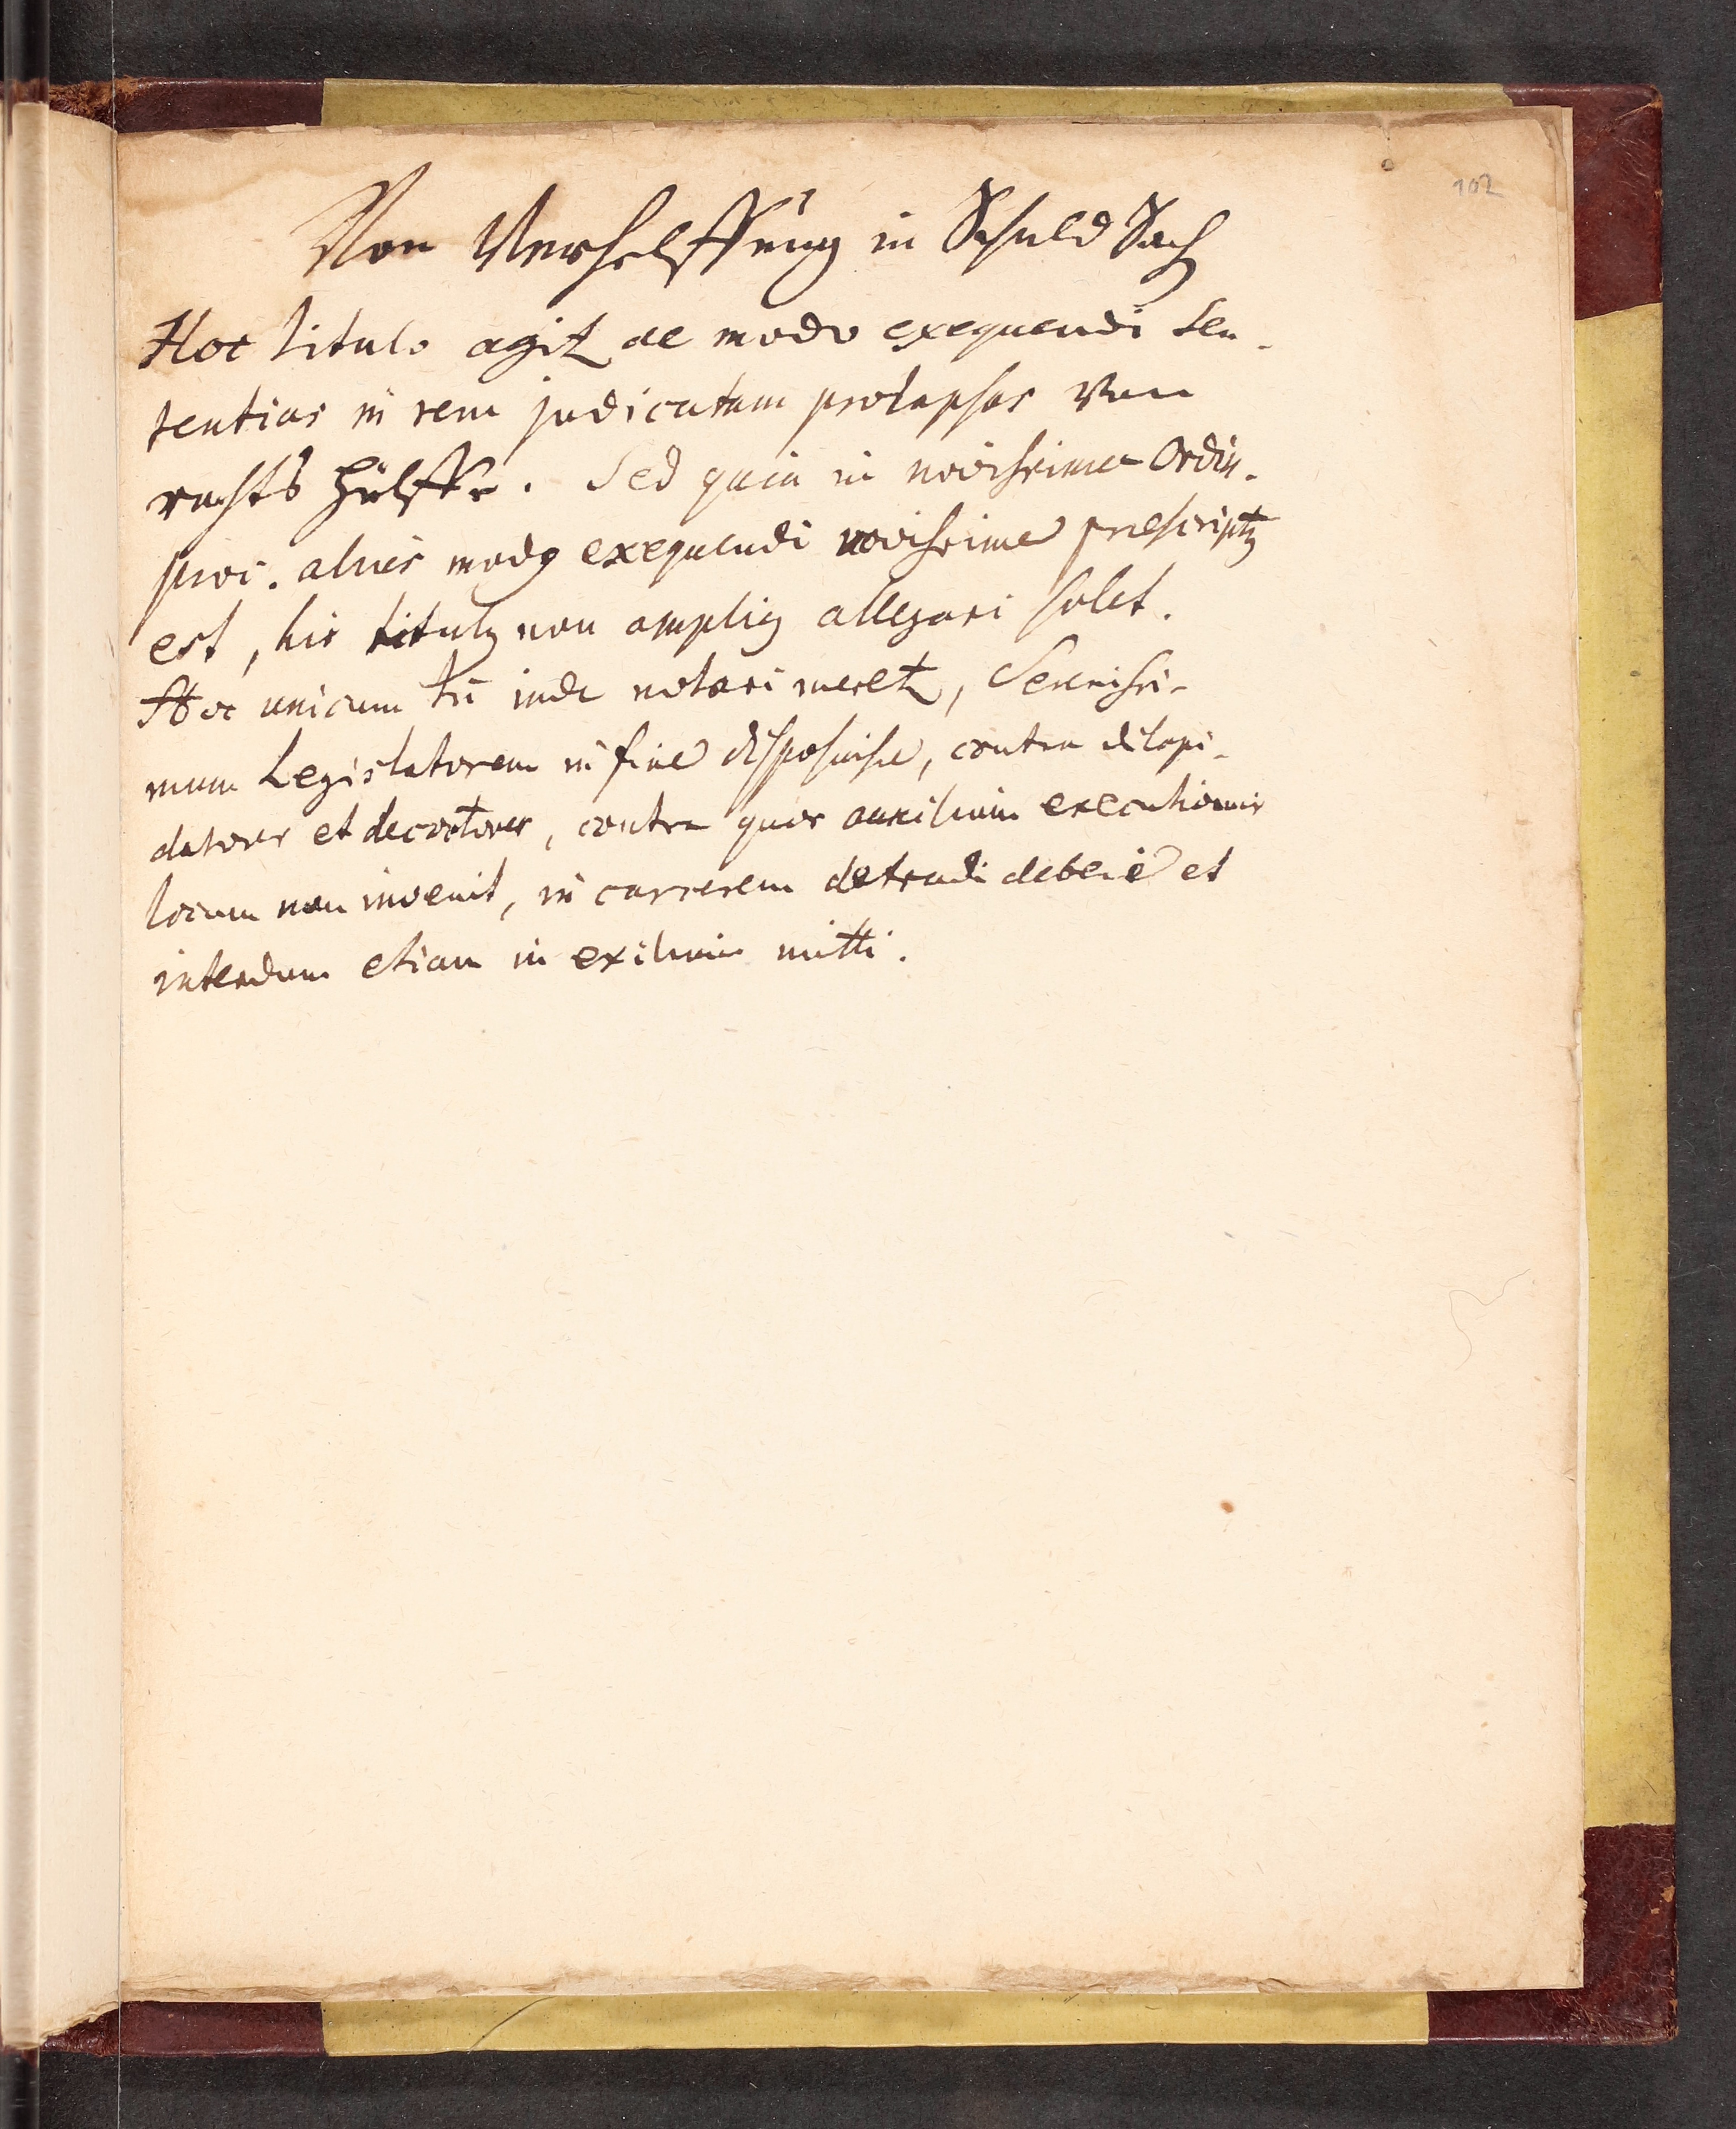 102
Von Verhelffung in Schuld Sach
Hoc titulo agit de modo exequendi Sen-
tentias in rem judicatam prolapsas von
rechts hülffe. Sed quia in novissima Ordin.
proc. alius modq exequendi novissime praescriptq
est, hic titulq non ampliq allegari solet.
Hoc unicum tn̄ inde notari meret, Serenissi-
mum Legislatorem in fine disposuisse, contra dilapi-
datores et decoctores, contra quos auxilium executionis
locum non invenit, in carcerem detrudi debere et
interdum etiam in exilium mitti.